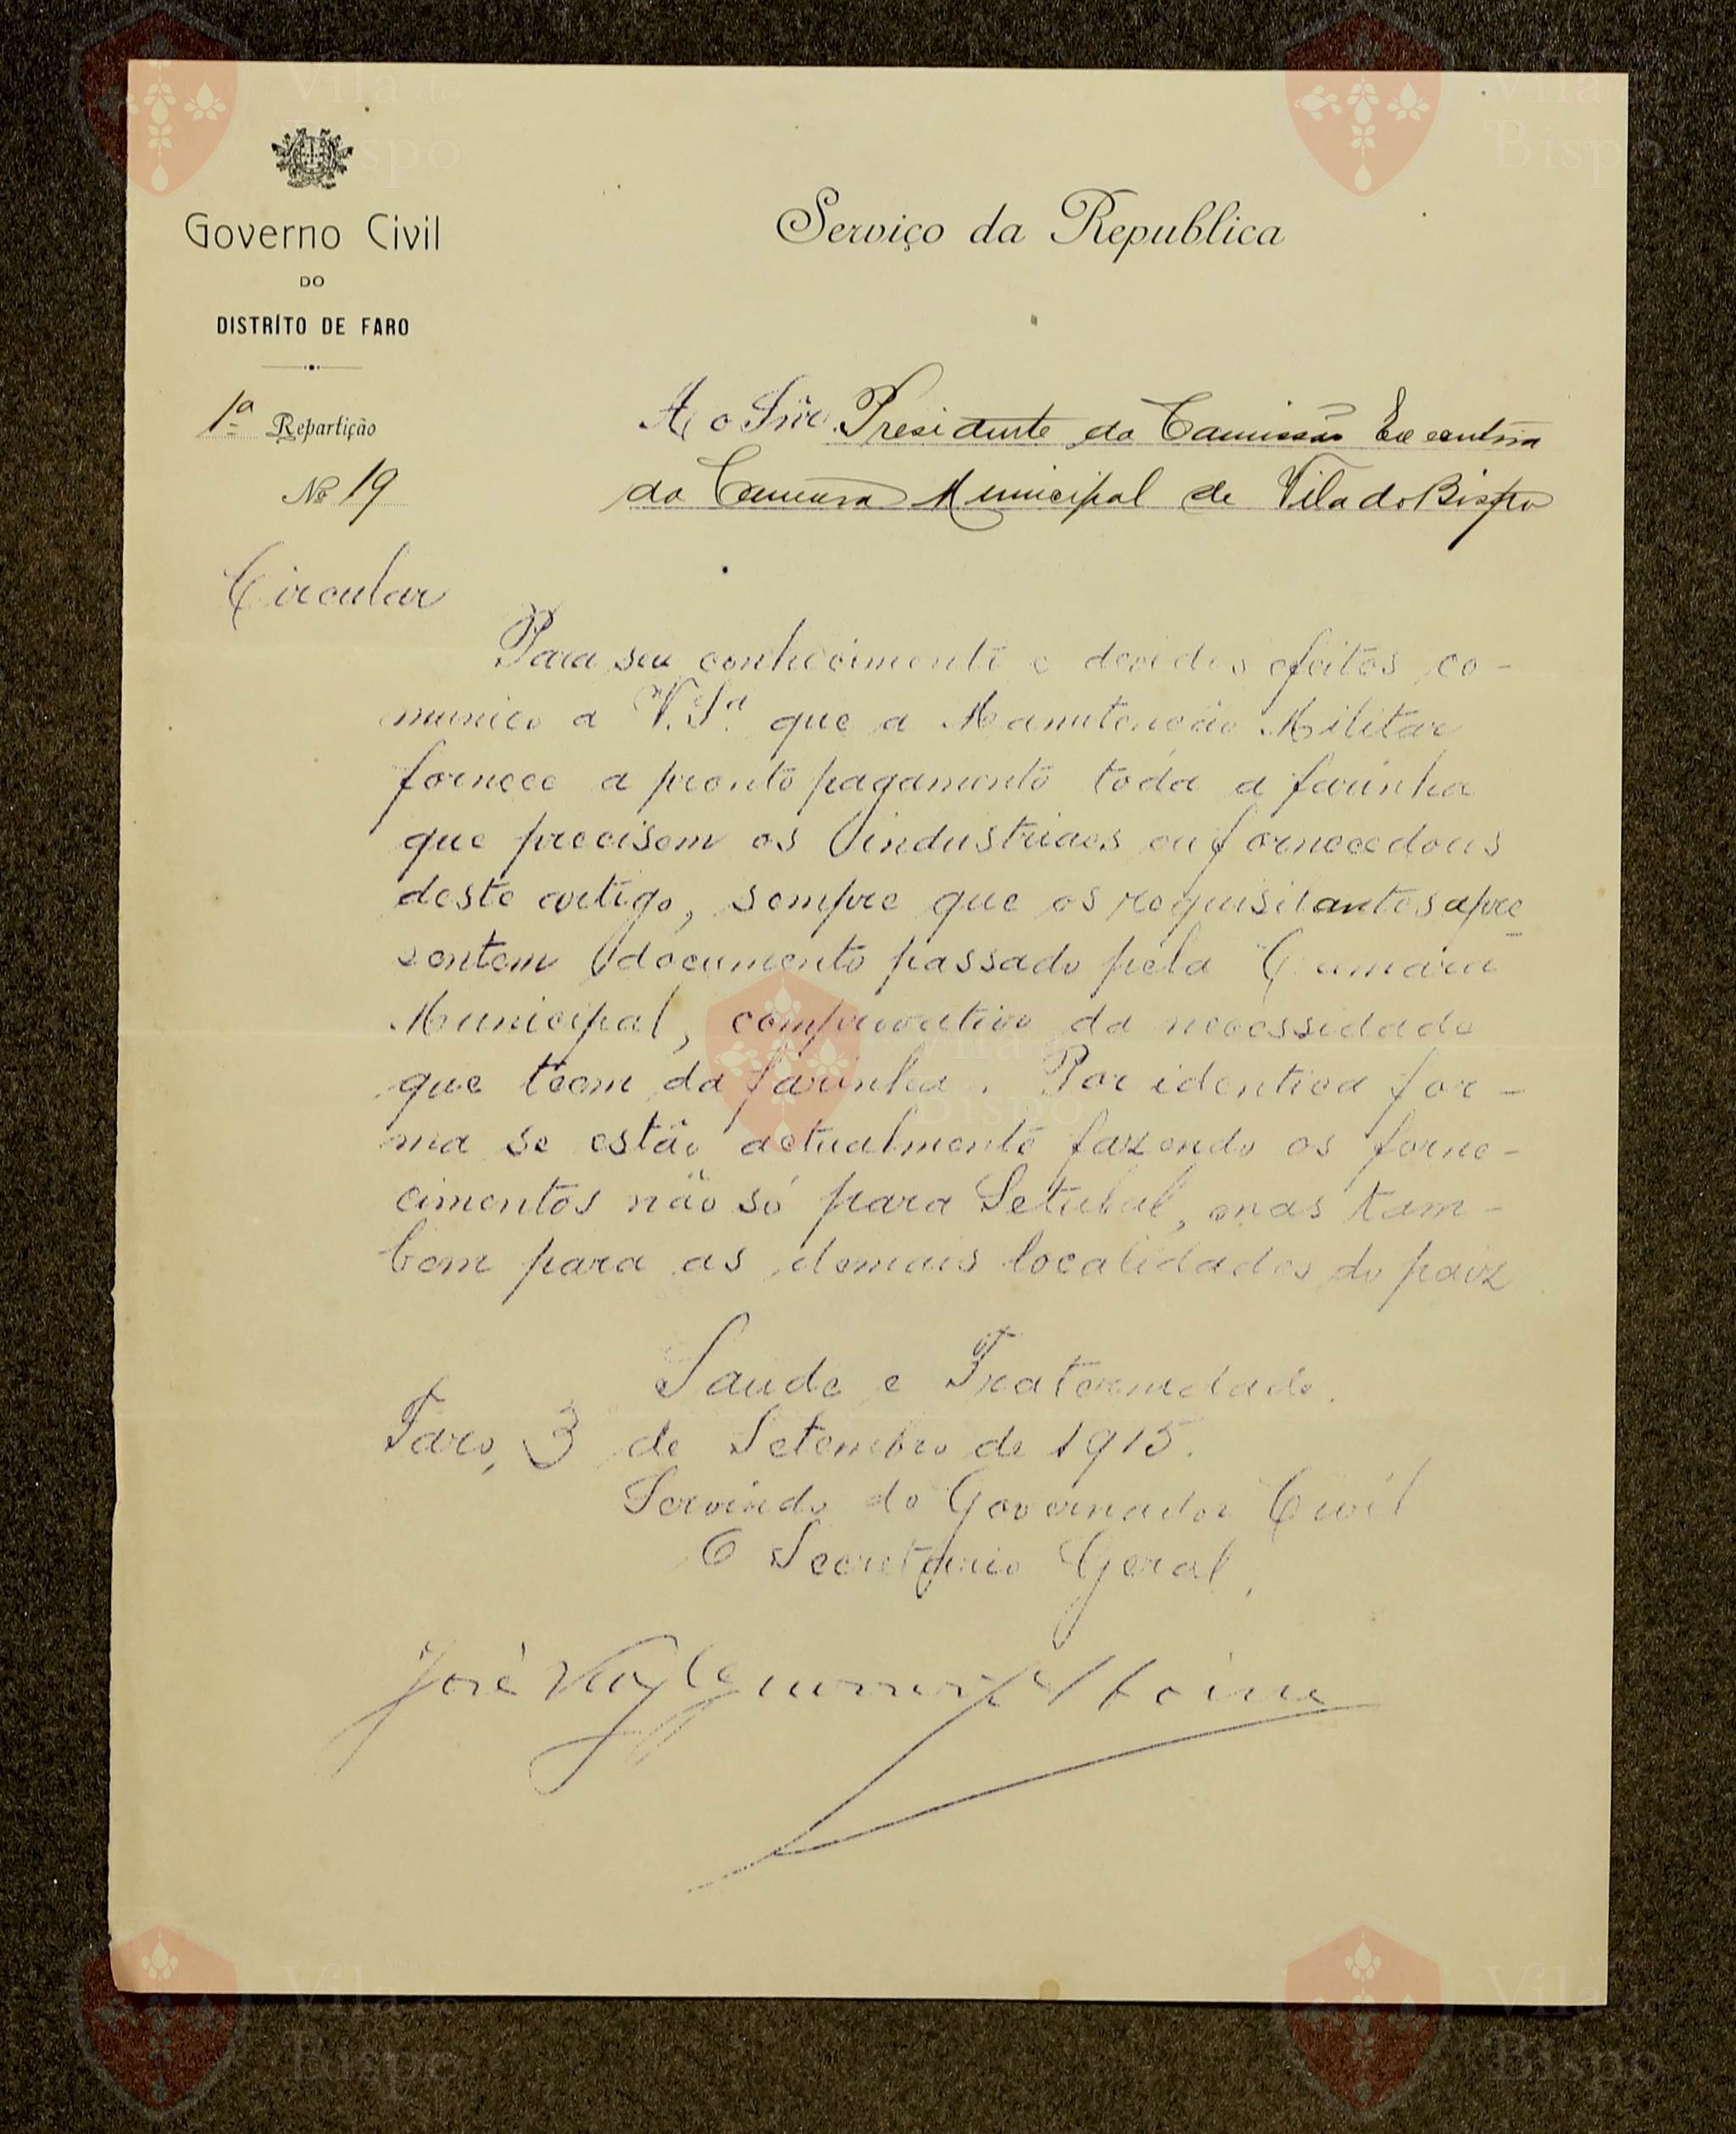 Governo Civil
DO
DISTRÍTO DE FARO
1ª Repartição
Nº 19
Serviço da Republica
Ao Snr. Presidente da Comissão Executiva
da Camara Municipal de Vila do Bispo
Circular
Para seu conhecimento e devidos efeitos co-
munico a V. Sª que a Manutenção Militar
fornece a pronto pagamento toda a farinha
que precisem os industriaes ou fornecedores
deste artigo, sempre que os requisitantes apre-
sentem documento passado pela Camara
Municipal, comprovativo da necessidade
que teem da farinha. Por identica for-
ma se estão actualmente fazendo os forne-
cimentos não só para Setubal, mas tam-
bem para as demais localidades do paiz
Saude e Fraternidade.
Faro, 3 de Setembro de 1915.
Servindo de Governador Civil
O Secretario Geral,
José
Vila do Bispo
Vila do Bispo
Vila do Bispo
Vila do Bispo
Vila do Bispo